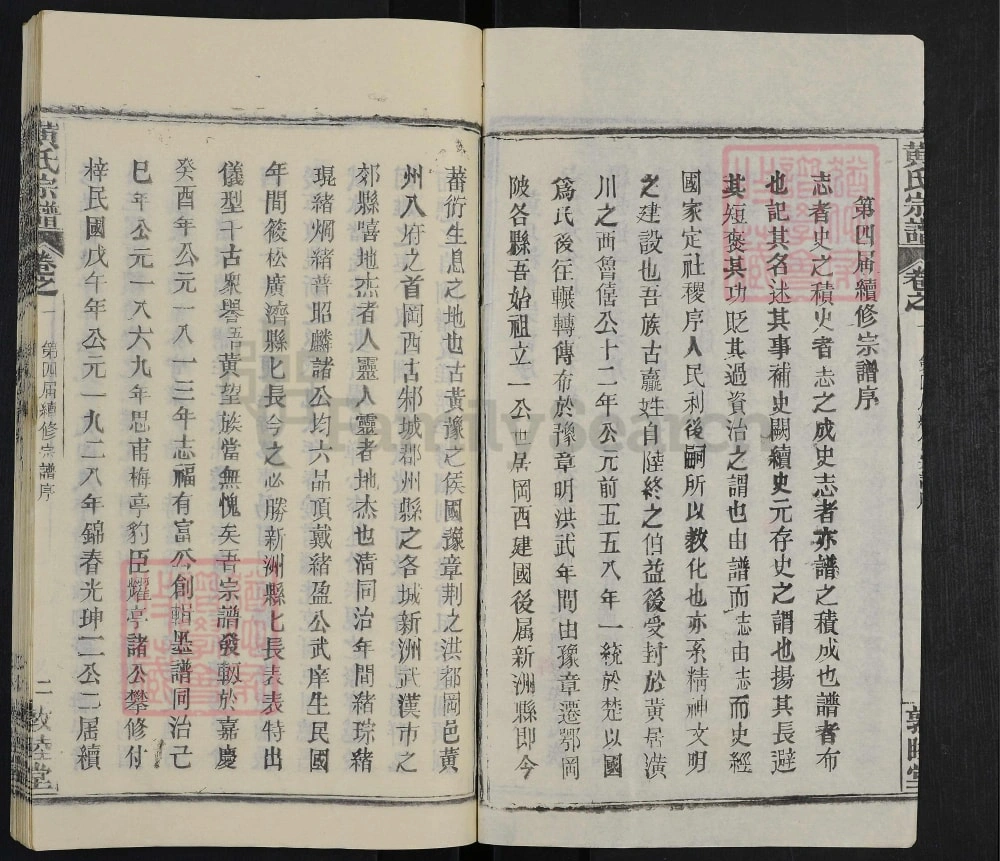 第四届續修宗譜序
志者史之積史者志之成史志者亦譜之積成也譜者布
也記其名述其事補史闕續史元存史之謂也揚其長避
其短褒其功貶其過資治之謂也由譜而志由志而史經
國家定社稷序人民利後嗣所以教化也亦系精神文明
之建設也吾族古嬴姓自陸終之伯益後受封於黃居潢
川之西魯僖公十二年公元前五五八年一統於楚以國
爲氏後往輾轉傳布於豫章明洪武年間由豫章遷鄂岡
陂各縣吾始祖立一公世居岡西建國後属新洲縣即今
蕃衍生息之地也古黃豫之侯國豫章荆之洪都岡邑黃
州八府之首岡西古邾城郡州縣之各城新洲武漢市之
郊縣嘻地杰者人靈人靈者地杰也清同治年間緒琮緒
琨緒炯緒普昭麟諸公均六品頂戴緒盈公武庠生民國
年間筱松廣濟縣七長今之必勝新洲縣七長表表特出
儀型千古衆譽吾黃望族當無愧矣吾宗譜發軔於嘉慶
癸酉年公元一八一三年志福有富公創輯墨譜同治己
巳年公元一八六九年思甫梅亭豹臣耀亭諸公攀修付
梓民國戊午年公元一九二八年錦春光坤二公二届續
黃氏宗譜
卷之一
第四届續修宗譜序
二
敦睦堂
FamilySearch